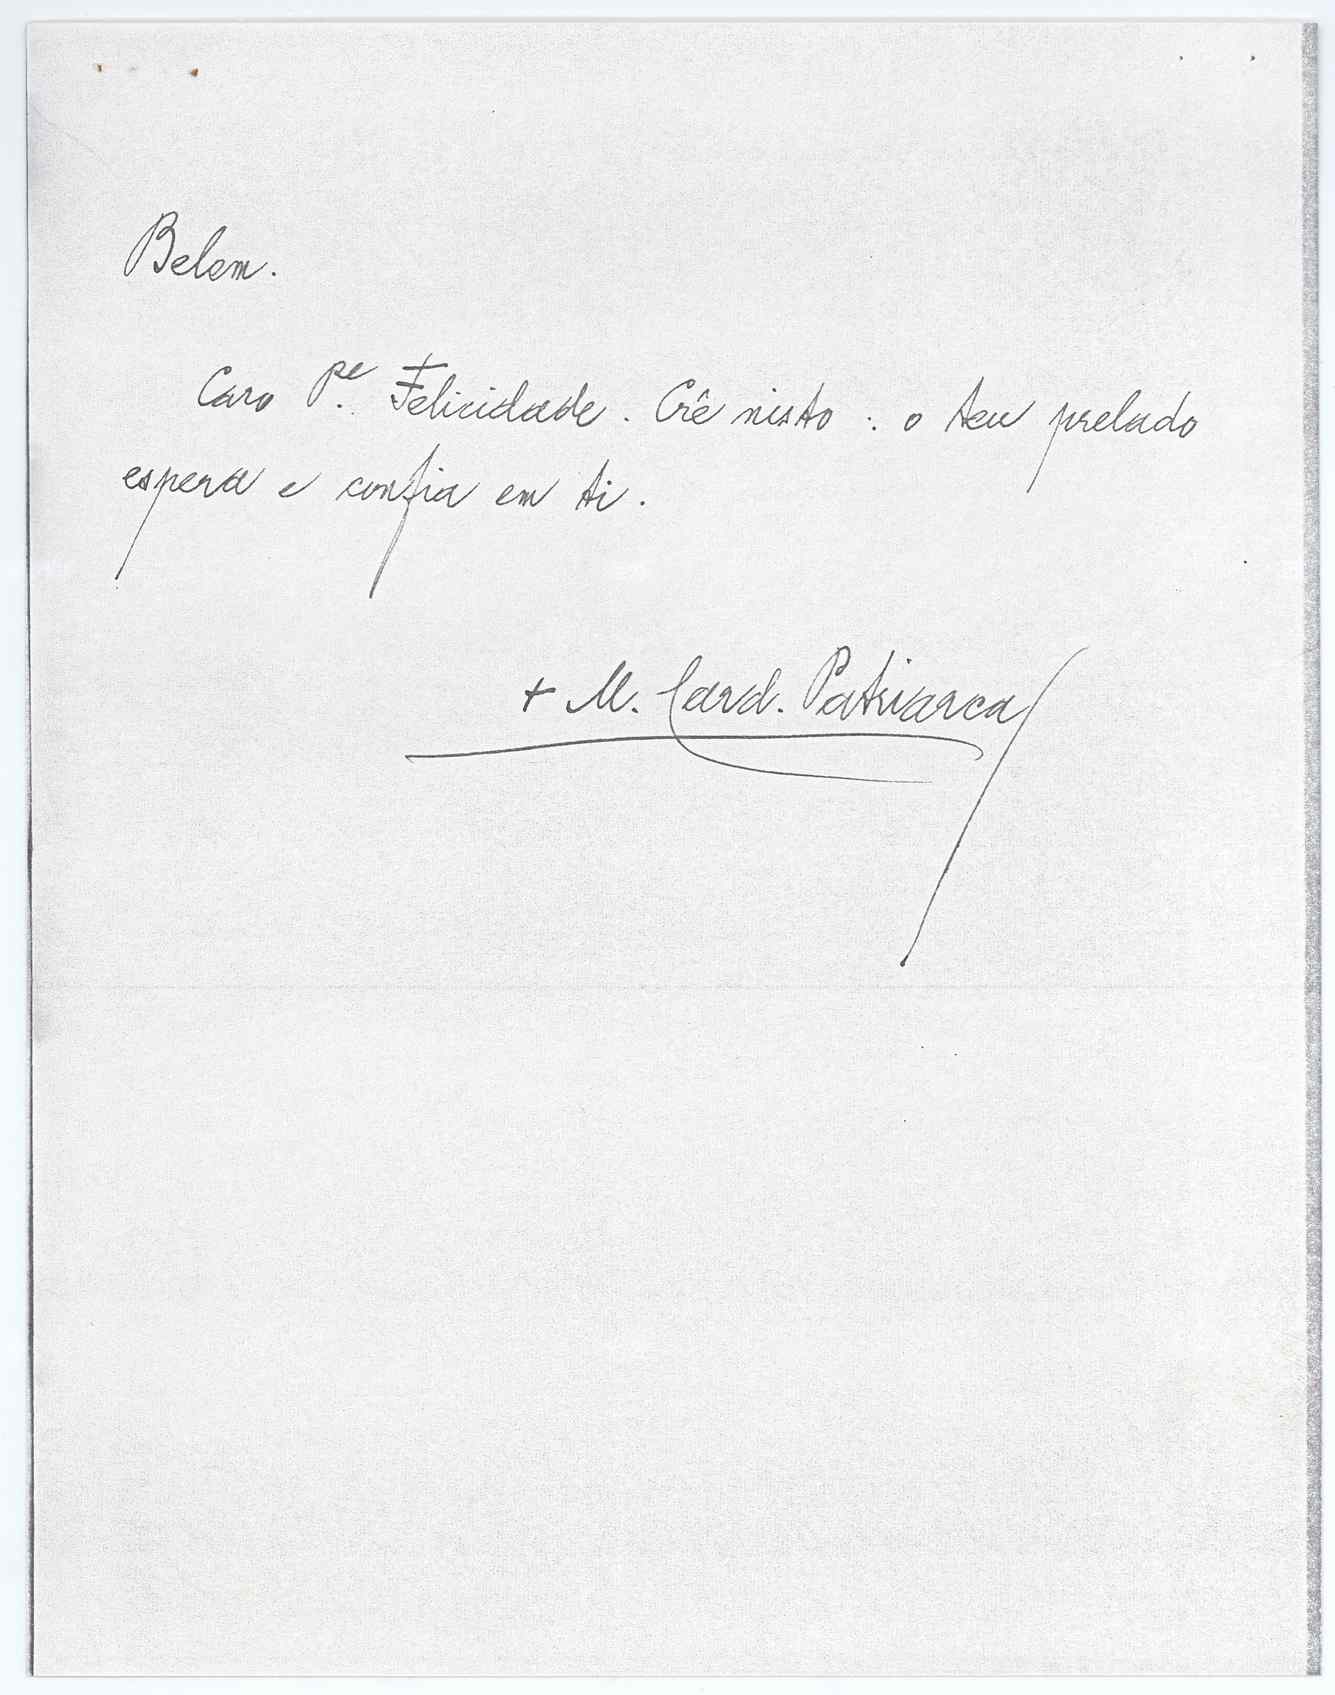 Belem.
Caro Pe. Felicidade. Crê nisto: o teu prelado
espera e confia em ti.
+ M. Card. Patriarca